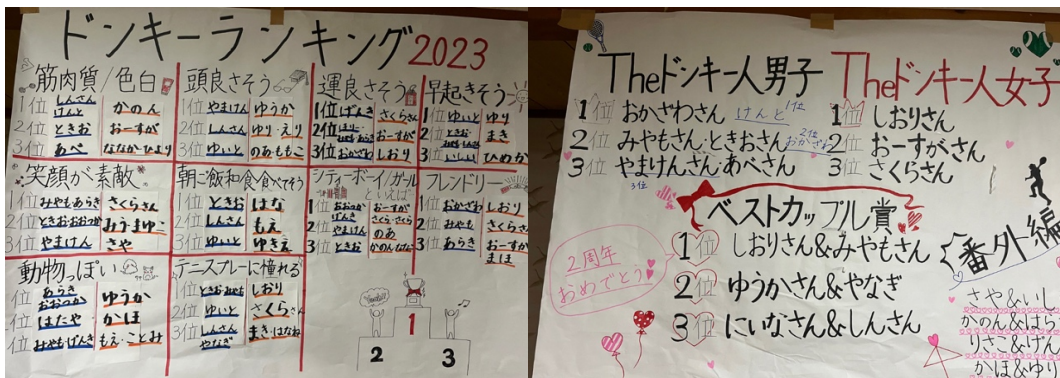 ドンキーランキング2023
筋肉質/色白
1位 しんさん けんと かのん
2位 ときお おーすが
3位 あべ ななか・ひより
頭良さそう
1位 やまけん ゆうか
2位 しんさん ゆり・えり
3位 ゆいと のあ・ももこ
運良さそう
1位 げんき さくらさん
2位 おーすが
3位 おかざわ しおり
早起きそう
1位 ゆいと ゆり
2位 まき
3位 いしい ひめか
笑顔が素敵
1位 みやも・あらき さくらさん
2位 ときお・おおつか みう・まゆこ
3位 やまけん さや
朝ご飯和食食べてそう
1位 ときお はな
2位 しんさん もえ
3位 ゆいと ゆきえ
シティーボーイ/ガール
といえば
1位 おおつか げんき おーすが
2位 やまけん のあ
3位 ときお かのん
フレンドリー
1位 おかざわ しおり
2位 みやも さくらさん
3位 あらき おーすが まほ
動物っぽい
1位 あらき おおつか ゆうか
2位 はたや かほ
3位 みやも・げんき もえ・ことみ
テニスプレーに憧れる
1位 ときお・みやも しおり
2位 ゆいと さくらさん
3位 しんさん やなぎ まき・はなね
1
2
3
Theドンキー人男子
1位 おかざわさん けんと 1位
2位 みやもさん・ときおさん 2位 おかざわ
3位 やまけんさん・あべさん
3位
Theドンキー人女子
1位 しおりさん
2位 おーすがさん
3位 さくらさん
ベストカップル賞
2周年
おめでとう
1位 しおりさん&みやもさん
2位 ゆうかさん&やなぎ
3位 にいなさん&しんさん
番外編
さや&いし
かのん&はら
りさこ&げん
かほ&ゆり